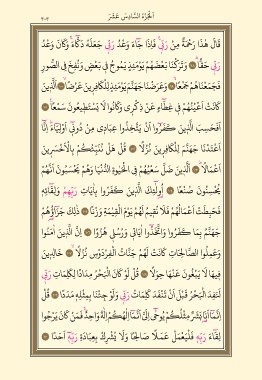 اَلْجُزْءُ السَّادِسَ عَشَرَ
٣٠٣
قَالَ هٰذَا رَحْمَةٌ مِنْ رَبّ۪يۚ فَاِذَا جَٓاءَ وَعْدُ رَبّ۪ي جَعَلَهُ دَكَّٓاءَۚ وَكَانَ وَعْدُ
رَبّ۪ي حَقًّاۜ وَتَرَكْنَا بَعْضَهُمْ يَوْمَئِذٍ يَمُوجُ ف۪ي بَعْضٍ وَنُفِخَ فِي الصُّورِ
فَجَمَعْنَاهُمْ جَمْعًاۙ وَعَرَضْنَا جَهَنَّمَ يَوْمَئِذٍ لِلْكَافِر۪ينَ عَرْضًاۙ اَلَّذ۪ينَ
كَانَتْ اَعْيُنُهُمْ ف۪ي غِطَٓاءٍ عَنْ ذِكْر۪ي وَكَانُوا لَا يَسْتَط۪يعُونَ سَمْعًا۟
اَفَحَسِبَ الَّذ۪ينَ كَفَرُٓوا اَنْ يَتَّخِذُوا عِبَاد۪ي مِنْ دُون۪ٓي اَوْلِيَٓاءَۜ اِنَّٓا
اَعْتَدْنَا جَهَنَّمَ لِلْكَافِر۪ينَ نُزُلًا قُلْ هَلْ نُنَبِّئُكُمْ بِالْاَخْسَر۪ينَ
اَعْمَالًاۜ اَلَّذ۪ينَ ضَلَّ سَعْيُهُمْ فِي الْحَيٰوةِ الدُّنْيَا وَهُمْ يَحْسَبُونَ اَنَّهُمْ
يُحْسِنُونَ صُنْعًا اُو۬لٰٓئِكَ الَّذ۪ينَ كَفَرُوا بِاٰيَاتِ رَبِّهِمْ وَلِقَٓائِه۪
فَحَبِطَتْ اَعْمَالُهُمْ فَلَا نُق۪يمُ لَهُمْ يَوْمَ الْقِيٰمَةِ وَزْنًا ذٰلِكَ جَزَٓاؤُ۬هُمْ
جَهَنَّمُ بِمَا كَفَرُوا وَاتَّخَذُٓوا اٰيَات۪ي وَرُسُل۪ي هُزُوًا اِنَّ الَّذ۪ينَ اٰمَنُوا
وَعَمِلُوا الصَّالِحَاتِ كَانَتْ لَهُمْ جَنَّاتُ الْفِرْدَوْسِ نُزُلًاۙ خَالِد۪ينَ
ف۪يهَا لَا يَبْغُونَ عَنْهَا حِوَلًا قُلْ لَوْ كَانَ الْبَحْرُ مِدَادًا لِكَلِمَاتِ رَبّ۪ي
لَنَفِدَ الْبَحْرُ قَبْلَ اَنْ تَنْفَدَ كَلِمَاتُ رَبّ۪ي وَلَوْ جِئْنَا بِمِثْلِه۪ مَدَدًا قُلْ
اِنَّمَٓا اَنَا۬ بَشَرٌ مِثْلُكُمْ يُوحٰٓى اِلَيَّ اَنَّمَٓا اِلٰهُكُمْ اِلٰهٌ وَاحِدٌۚ فَمَنْ كَانَ يَرْجُوا
لِقَٓاءَ رَبِّه۪ فَلْيَعْمَلْ عَمَلًا صَالِحًا وَلَا يُشْرِكْ بِعِبَادَةِ رَبِّه۪ٓ اَحَدًا